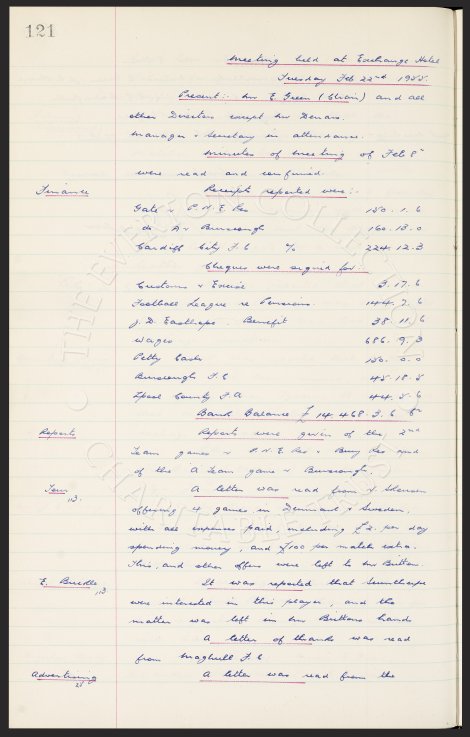 121
Meeting held at Exchange Hotel
Tuesday Feb 22nd 1955.
Present:- Mr E. Green (Chair) and all
other Directors except Mr Sears.
Manager & Secretary in attendance.
Minutes of Meeting of Feb 8
were read and confirmed.
Finance Receipts reported were:-
Gate v P.N.E Res 150. 1. 6
do A v Burscough 160. 13. 0
Cardiff City F.C % 224. 12. 3
Cheques were signed for:-
Customs & Excise 3. 17. 6
Football League re Pensions. 144. 7. 6
J. D. Easthope. Benefit 38. 11. 6
Wages 686. 9. 3
Petty Cash 150. 0. 0
Burscough F.C 45. 18. 5
Lpool County F.A 44. 5. 6
Bank Balance £ 14,468. 3. 6 Cr
Reports Reports were given of the 2nd
Team games v P.N.E Res & Bury Res and
of the A Team game v Burscough.
Tour A letter was read from
offering 4 games in Denmark & Sweden,
with all expenses paid, including £2 per day
spending money, and £100 per match extra.
This, and other offers were left to Mr Britton.
E. It was reported that Scunthorpe
were interested in this player, and the
matter was left in Mr Brittons hands
A letter of thanks was read
from Maghull F.C
Advertising A letter was read from the
THE EVERTON COLLECTION
CHARITABLE TRUST